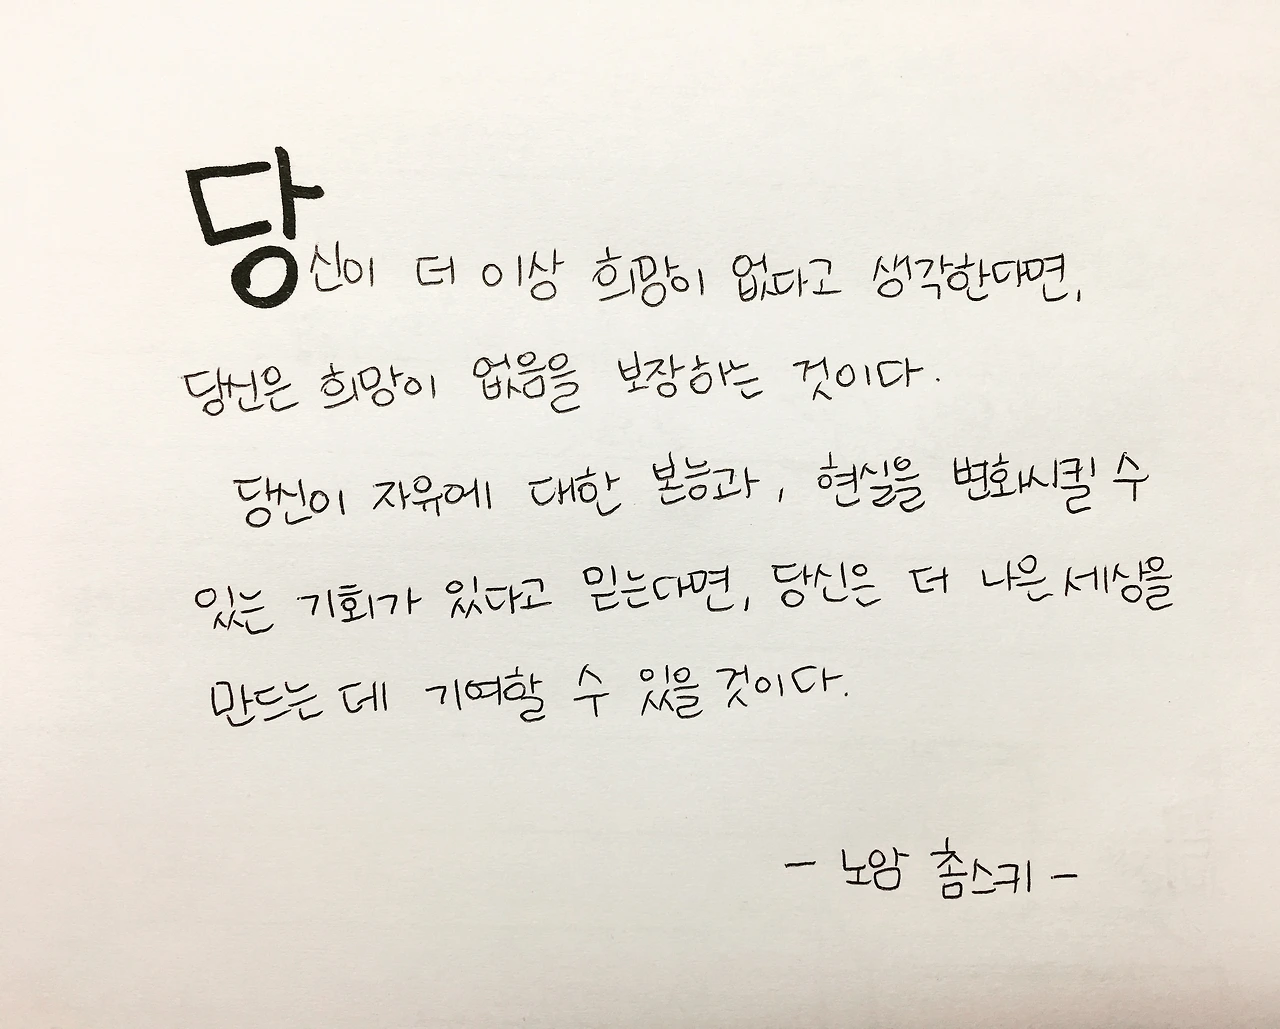 당신이 더 이상 희망이 없다고 생각한다면,
당신은 희망이 없음을 보장하는 것이다.
당신이 자유에 대한 본능과, 현실을 변화시킬 수
있는 기회가 있다고 믿는다면, 당신은 더 나은 세상을
만드는 데 기여할 수 있을 것이다.
- 노암 촘스키 -